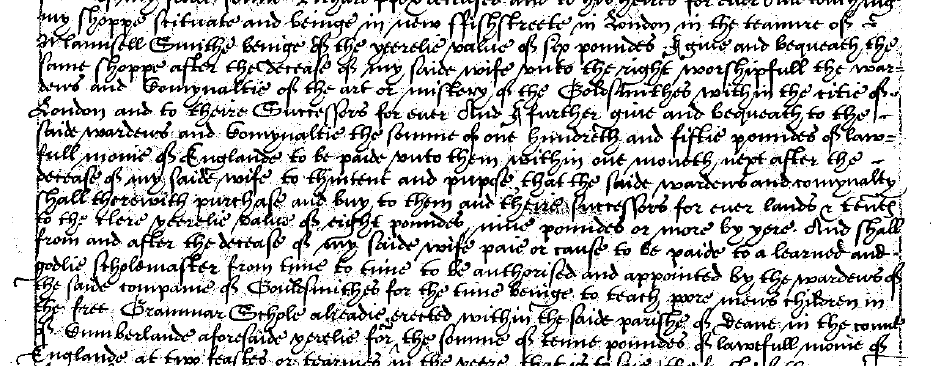 my shoppe scituate and beinge in new ffishstreete in London in the teanure of
Smithe beinge of the yeerelie value of sex poundes I give and bequeath the
same shoppe after the decease of my saide wife unto the right worshipfull the war-
dens and Comynaltie of the art or mistery of the Goldsmithes within the citie of
London and to theire Successors for ever And I further give and bequeath to the
saide wardens and Comynaltie the somme of one hundreth and fiftie poundes of law-
full monie of Englande to be paide unto them within one moneth next after the
decease of my saide wife to thintent and purpose that the saide wardens and comynalty
shall therewith purchase and buy to them and theire successors for ever lands & tents
to the clere yeerelie value of eight poundes nine poundes or more by yere And shall
from and after the decease of my saide wife paie or cause to be paide to a learned and
godlie scholemaster from time to time to be authorised and appointed by the wardens of
the saide companie of Gouldsmithes for the time beinge to teach pore mens children in
the free Grammar Schole alreadie erected within the saide parishe of Deane in the countie
of Cumberlande aforesaide yerelie for the somme of tenne poundes of lawefull monie of
Englande at two feastes or tearmes in the yeere that is to saie